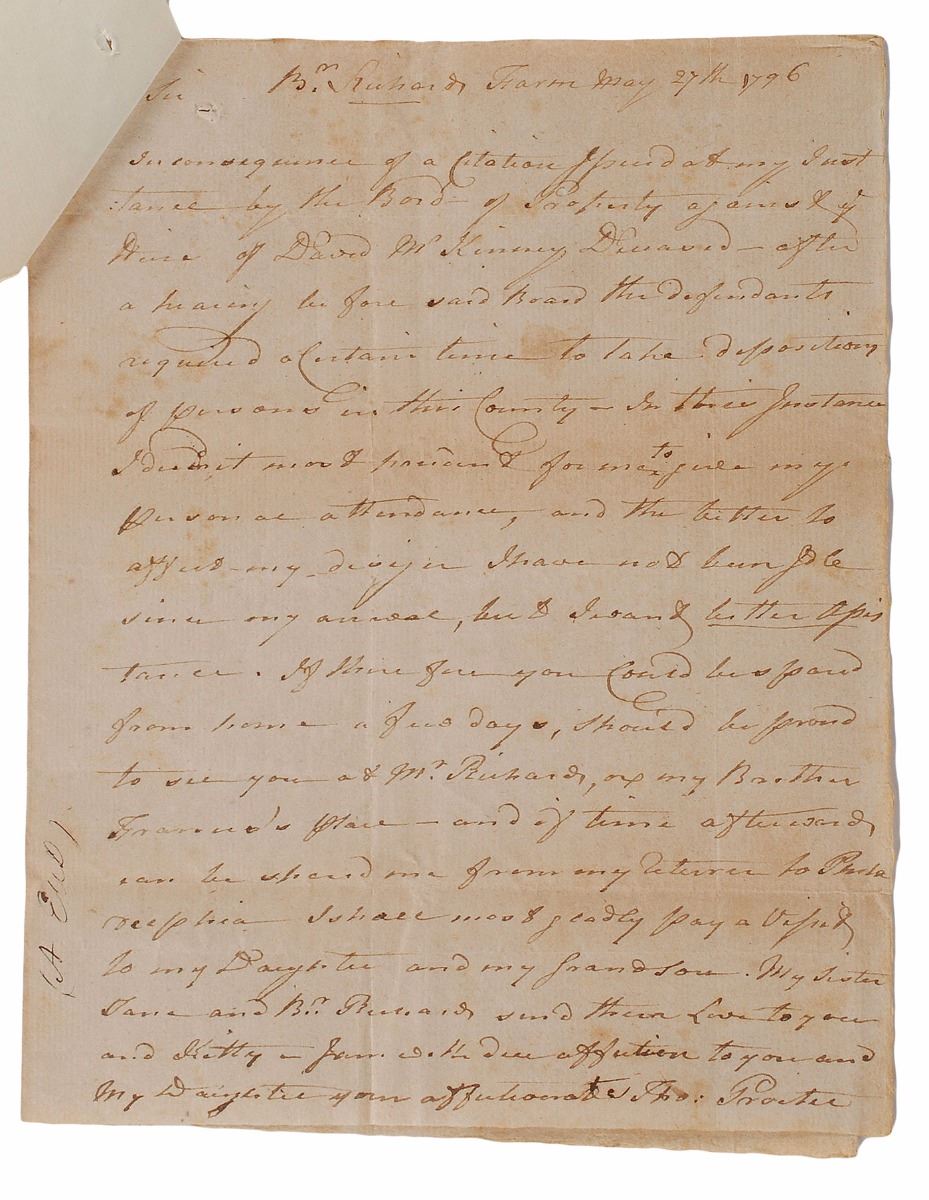 Sir Br. Richards Farm May 27th 1796
In consequence of a Citation Issued at my Inst
:tance by the Bord of Property against ye
Heirs of David McKinney Deceased – after
a hearing be fore said Board the defendants
required a Certain time to take depositions
of persons in this County – In this Instance
I deemd it most prudent for me to give my
personal attendance, and the better to
affect my design I have not been Idle
since my arrival, but I want better Assis
tance. If there fore you Could be spared
from home a few days, should be proud
to see you at Mr. Richards, or my Brother
Francis's place – and if time afterwards
can be shared me from my returne to Phila
delphia I shall most gladly pay a Visit
to my Daughter and my Grandson. My Sister
Jane and Br. Richards send there Love to you
and Kitty – I am with due affection to you and
My Daughter your affectionate Tho: Procter